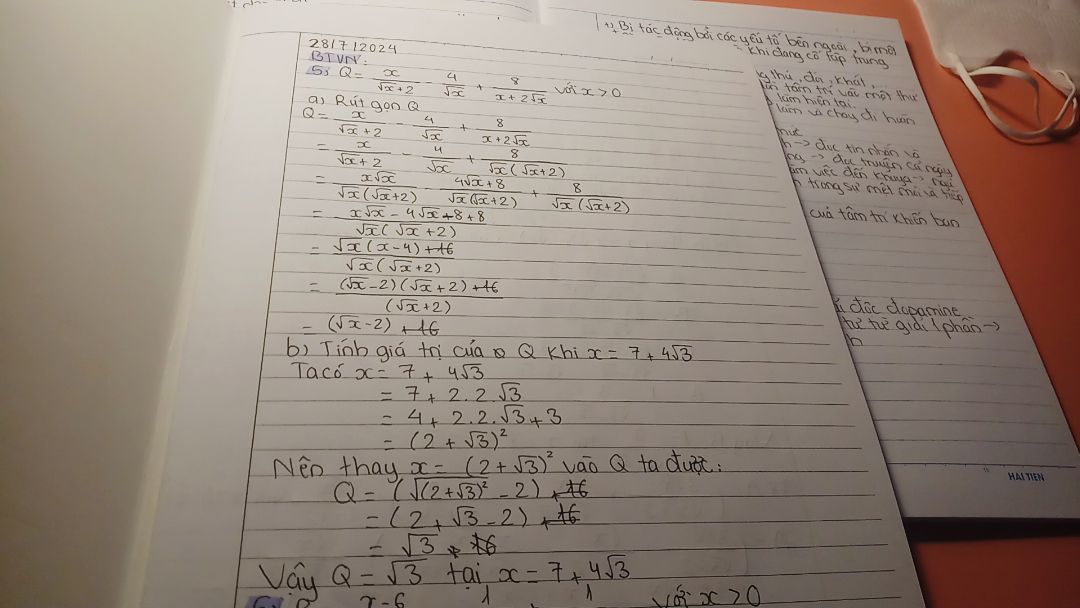 28/7/2024
BTVN:
5; Q = x/(√x+2) - 4/√x + 8/(x+2√x) với x>0
a) Rút gọn Q
Q = x/(√x+2) - 4/√x + 8/(x+2√x)
= x/(√x+2) - 4/√x + 8/(√x(√x+2))
= x√x/(√x(√x+2)) - (4√x+8)/(√x(√x+2)) + 8/(√x(√x+2))
= (x√x - 4√x +8+8)/(√x(√x+2))
= (√x(x-4)+16)/(√x(√x+2))
= ((√x-2)(√x+2)+16)/(√x+2)
= (√x-2) +16
b) Tính giá trị của Q khi x = 7 + 4√3
Ta có x = 7 + 4√3
= 7 + 2.2.√3
= 4 + 2.2.√3 + 3
= (2 + √3)²
Nên thay x = (2 + √3)² vào Q ta được:
Q = (√(2+√3)² - 2) +16
= (2 + √3 - 2) +16
= √3 + 16
Vậy Q = √3 tại x = 7 + 4√3
x-6 1 1 với x>0
Bị tác động bởi các yếu tố bên ngoài, bị mất
khi đang cố tập trung
thú, đói, khát,
tâm trí vào một thứ
làm hiện tại
làm và chạy đi
-> đọc tin nhắn và
-> đọc truyện cả ngày
việc đến khuya -> ngủ
trong sự mệt mỏi và tiếp
của tâm trí khiến bạn
độc dopamine
từ giải (phần ->
HAI TIEN